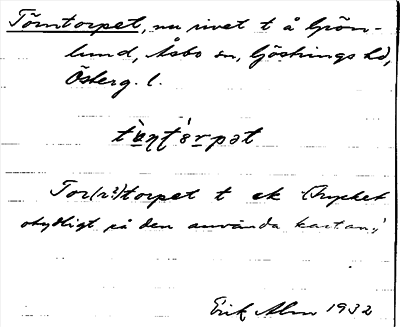 Törntorpet, nu rivet t å Grön-
lund, Åsbo sn, Göstrings hd,
Österg. l.
Tor(r?)torpet t ek (Mycket
otydligt på den använda kartan)
Erik Alm 1932